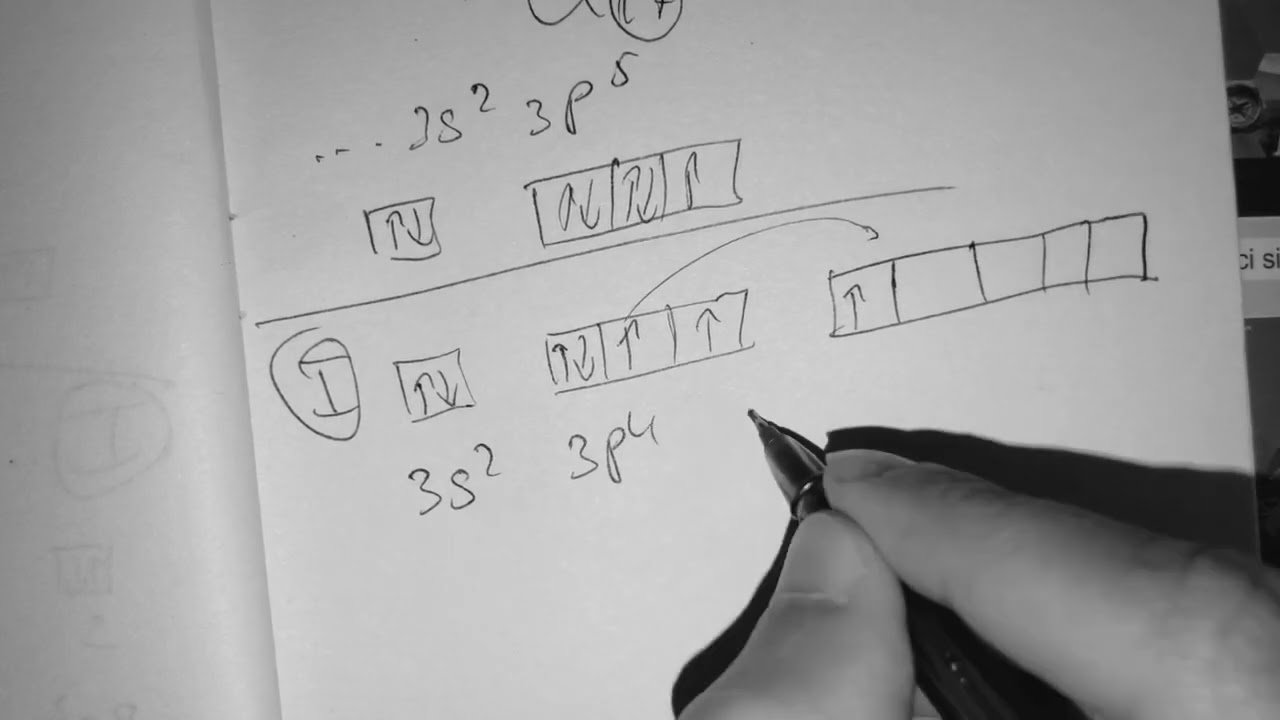 ... 3s² 3p⁵
↑↓ ↑↓ ↑↓ ↑
I ↑↓ ↑↓ ↑ ↑ ↑
3s² 3p⁴
ci si